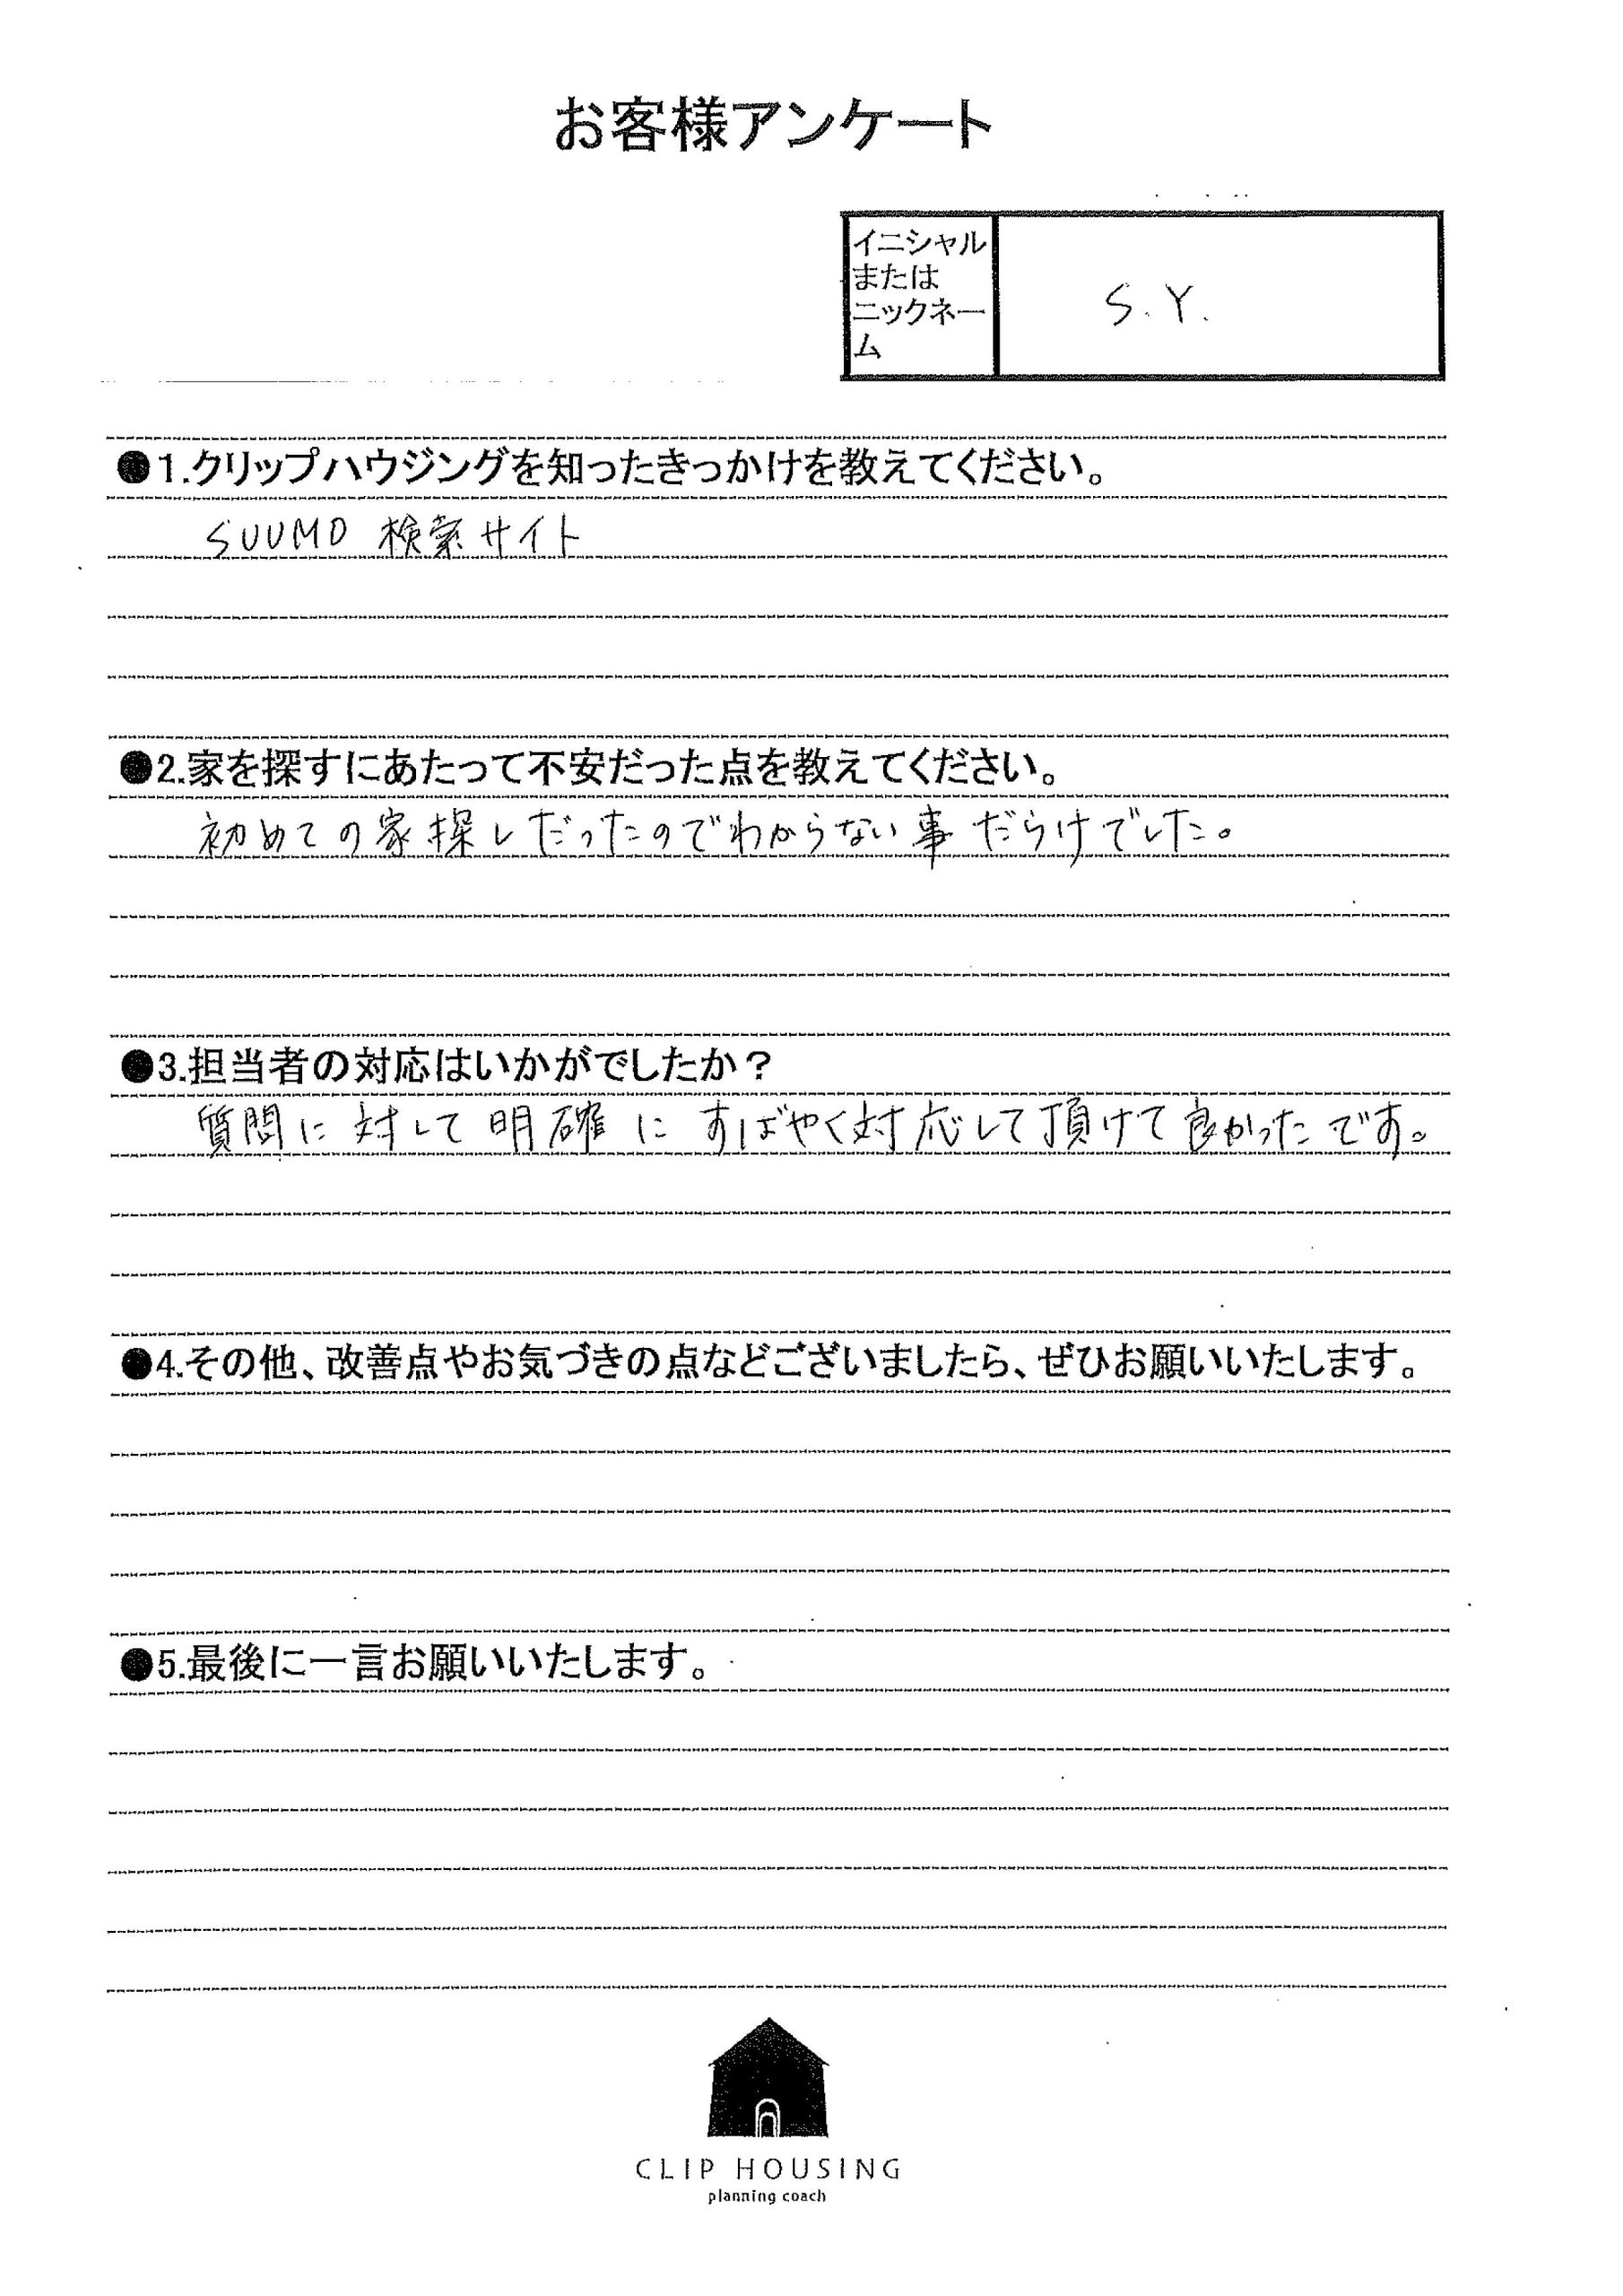 お客様アンケート
イニシャル
または
ニックネー
ム
S.Y.
●1.クリップハウジングを知ったきっかけを教えてください。
SUUMO 検索サイト
●2.家を探すにあたって不安だった点を教えてください。
初めての家探しだったのでわからない事だらけでした。
●3.担当者の対応はいかがでしたか？
質問に対して明確にすばやく対応して頂けて良かったです。
●4.その他、改善点やお気づきの点などございましたら、ぜひお願いいたします。
●5.最後に一言お願いいたします。
CLIP HOUSING
planning coach